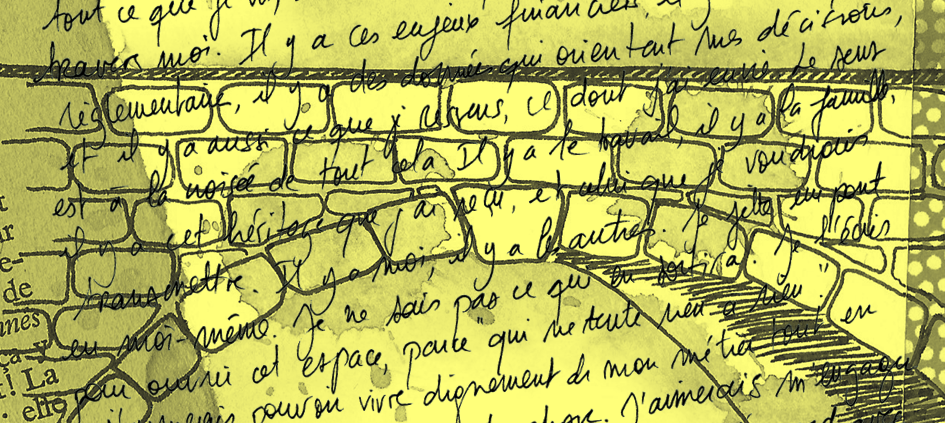 tout ce que je
travers moi. Il y a ces enjeux financiers et
réglementaire, il y a des données qui orientent mes décisions,
et il y a aussi ce que je ressens, ce dont j'ai envie. Le sens
est à la croisée de tout cela. Il y a le travail, il y a la famille,
il y a cet héritage que j'ai reçu, et celui que je voudrais
transmettre. Il y a moi, il y a les autres. Je jette un pont
en moi-même. Je ne sais pas ce qui en sortira. Je l'écris
pour ouvrir cet espace, parce "qui ne tente rien a rien".
pouvoir vivre dignement de mon métier tout en
J'aimerais m'engager
e-
de
nnes
ça-y
! La
elle